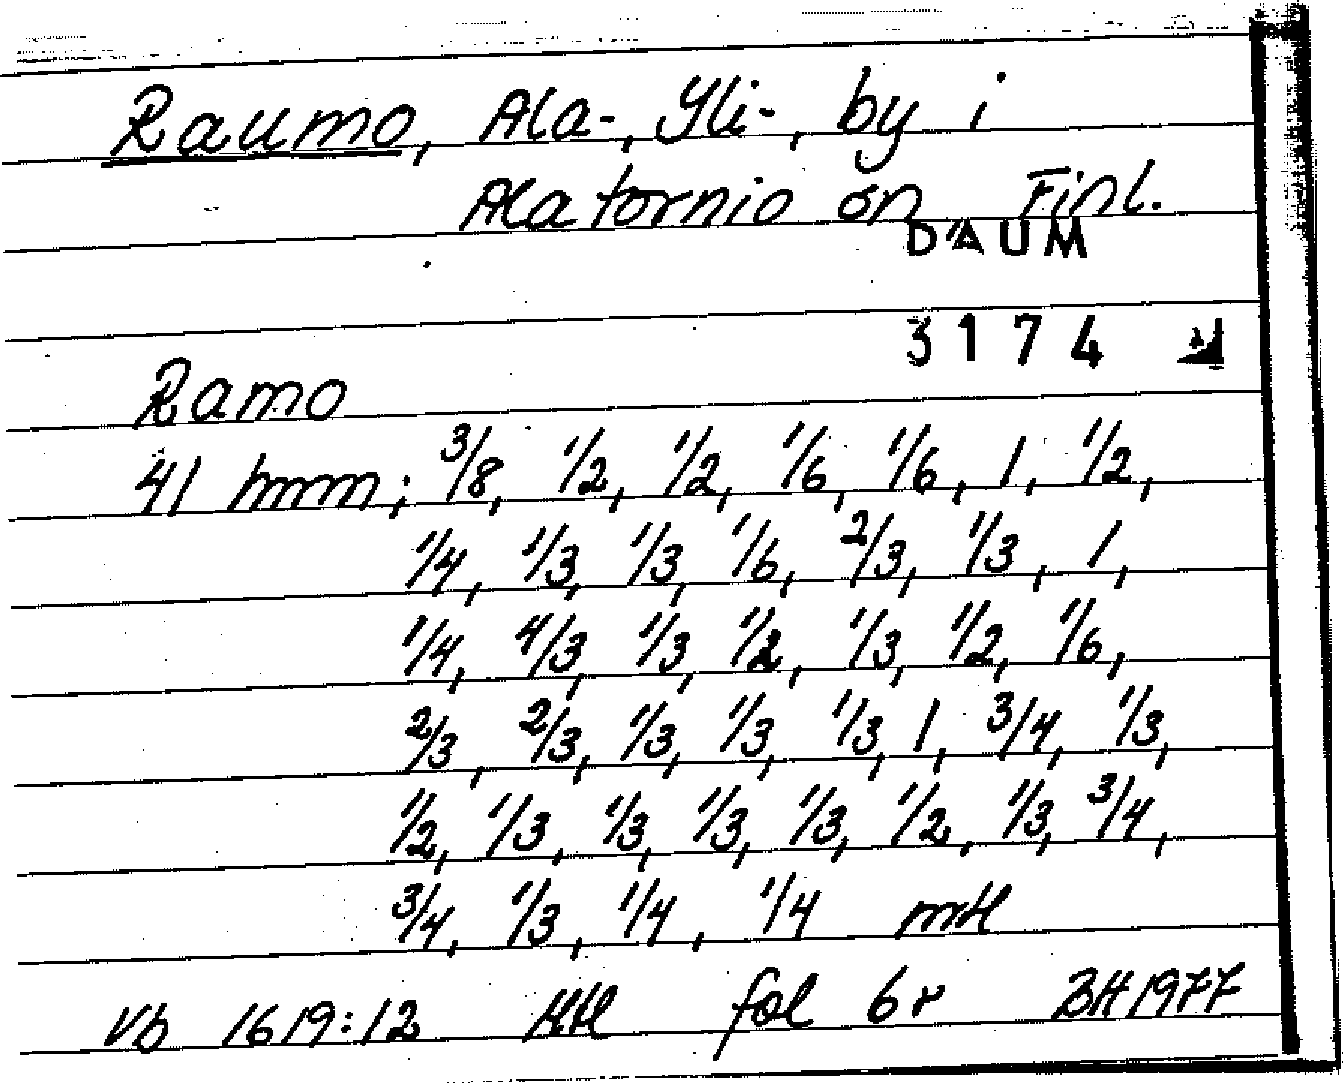 Raumo, Ala-, Yli-, by i
Alatornio sn Finl.
DAUM
3174
Ramo
41 hmm; 3/8, 1/2, 1/2, 1/6, 1/6, 1, 1/2,
1/4, 1/3, 1/3, 1/6, 2/3, 1/3, 1,
1/4, 4/3, 1/3, 1/2, 1/3, 1/2, 1/6,
2/3, 2/3, 1/3, 1/3, 1/3, 1, 3/4, 1/3,
1/2, 1/3, 1/3, 1/3, 1/3, 1/2, 1/3, 3/4,
3/4, 1/3, 1/4, 1/4 mtl
Vb 1619:12 Mtl fol 6r BH 1977